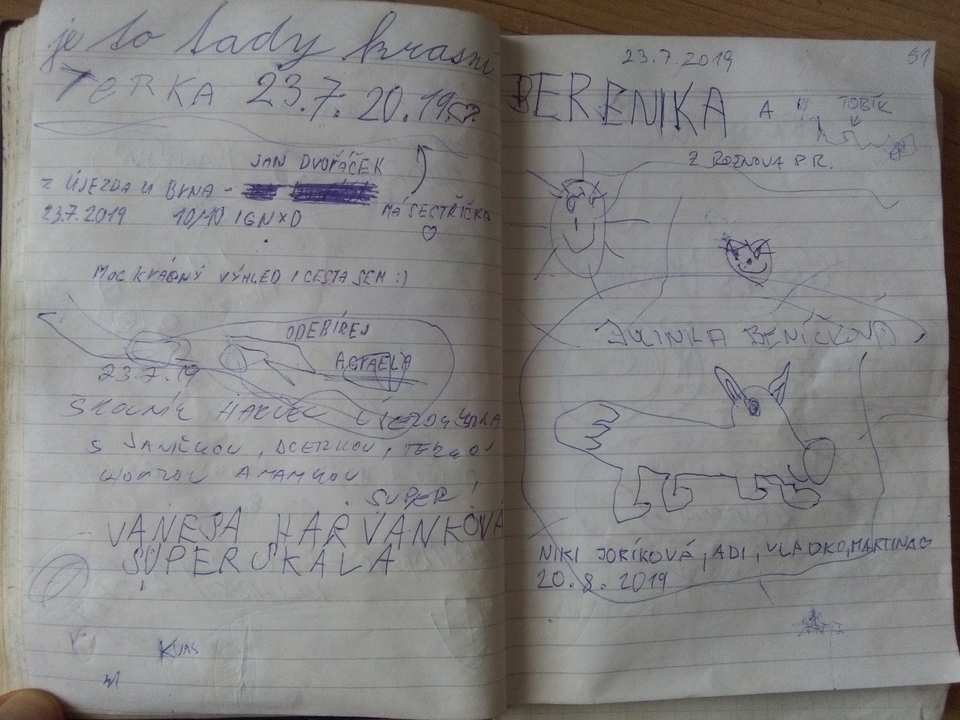 je to tady krasní
TERKA 23.7.2019
JAN DVOŘÁČEK
Z ÚJEZDA U BRNA -
23.7.2019 10/10 IGNXD
MÁ SESTŘIČKA
MOC KRÁSNÝ VÝHLED I CESTA SEM :)
ODEBÍREJ
AGRAELA
23.7.19
S JANIČKOU, DCERKOU, TERKOU
A MAMKOU
SUPER!
VANESA HARVÁNKOVÁ
SUPER SKÁLA
23.7.2019
51
BERENIKA A
TOBÍK
Z ROŽNOVA P.R.
JULINKA BENÍČKOVÁ
NIKI JORÍKOVÁ, ADI, VLADKO, MARTINA
20.8.2019